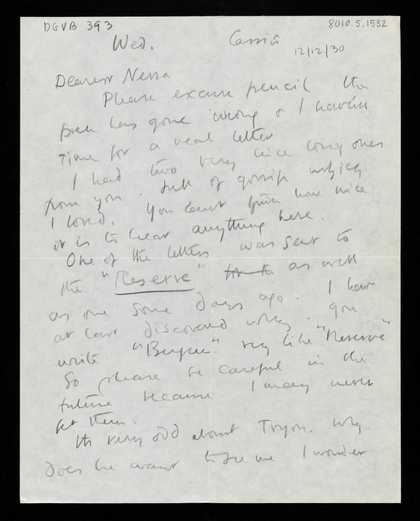 DGVB 393
8010.5.1532
Wed. Cassis
12/12/30
Dearest Nessa
Please excuse pencil the
pen has gone wrong & I haven't
time for a real letter
I had two very nice long ones
from you. full of gossip which
I loved. You can't know how nice
it is to hear anything here.
One of the letters was sent to
the "Reserve" as well
as one some days ago. I have
at last discovered why. you
write very like "Reserve"
So please be careful in the
future because I may never
get them.
It's very odd about Tryon. why
does he want to see me I wonder